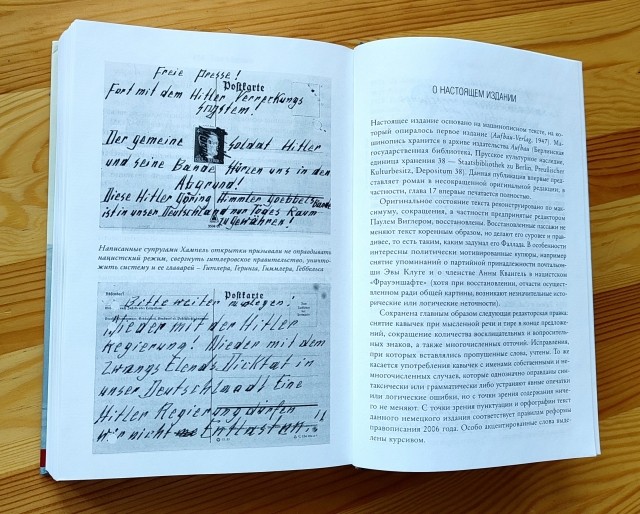 Freie Presse!
Postkarte
Fort mit dem Hitler Verreckungs
system!
Der gemeine soldat Hitler
und seine Bande Stürzen uns in den
Abgrund!
Diese Hitler Göring Himmler Goebbels Bande
ist in unser Deutschland nur Todes Raum
zu gewähren!
Написанные супругами Хампель открытки призывали не оправдывать
нацистский режим, свергнуть гитлеровское правительство, уничто-
жить систему и ее главарей – Гитлера, Геринга, Гиммлера, Геббельса
Bitte weiter zulegen!
Postkarte
Nieder mit der Hitler
Regierung! Nieder mit dem
Zwangs Elends Dicktat in
unser Deutschland Eine
Hitler Regierung dürfen
wir nicht
О НАСТОЯЩЕМ ИЗДАНИИ
Настоящее издание основано на машинописном тексте, на ко-
торый опиралось первое издание (Aufbau-Verlag, 1947). Ма-
шинопись хранится в архиве издательства Aufbau (Берлинская
государственная библиотека, Прусское культурное наследие,
единица хранения 38 — Staatsbibliothek zu Berlin, Preußischer
Kulturbesitz, Depositum 38). Данная публикация впервые пред-
ставляет роман в несокращенной оригинальной редакции, в
частности, глава 17 впервые печатается полностью.
Оригинальное состояние текста реконструировано по мак-
симуму, сокращения, в частности предпринятые редактором
Паулем Виглером, восстановлены. Восстановленные пассажи не
меняют текст коренным образом, но делают его суровее и прав-
дивее, то есть таким, каким задумал его Фаллада. В особенности
интересны политически мотивированные купюры, например
снятие упоминаний о партийной принадлежности почтальон-
ши Эвы Клуге и о членстве Анны Квангель в нацистском
«Фрауэншафте» (хотя при восстановлении, отчасти осуществлен-
ном ради общей картины, возникают незначительные истори-
ческие или логические неточности).
Сохранена главным образом следующая редакторская правка:
снятие кавычек при мысленной речи и тире в конце предложе-
ний, сокращение количества восклицательных и вопроситель-
ных знаков, а также многочисленных отточий. Исправления,
при которых вставлялись пропущенные слова, учтены. То же
касается употребления кавычек с именами собственными и не-
многочисленных случаев, которые однозначно оправданы син-
таксически или грамматически либо устраняют явные опечатки
или логические ошибки, но с точки зрения содержания ниче-
го не меняют. С точки зрения пунктуации и орфографии текст
данного немецкого издания соответствует правилам реформы
правописания 2006 года. Особо акцентированные слова выде-
лены курсивом.